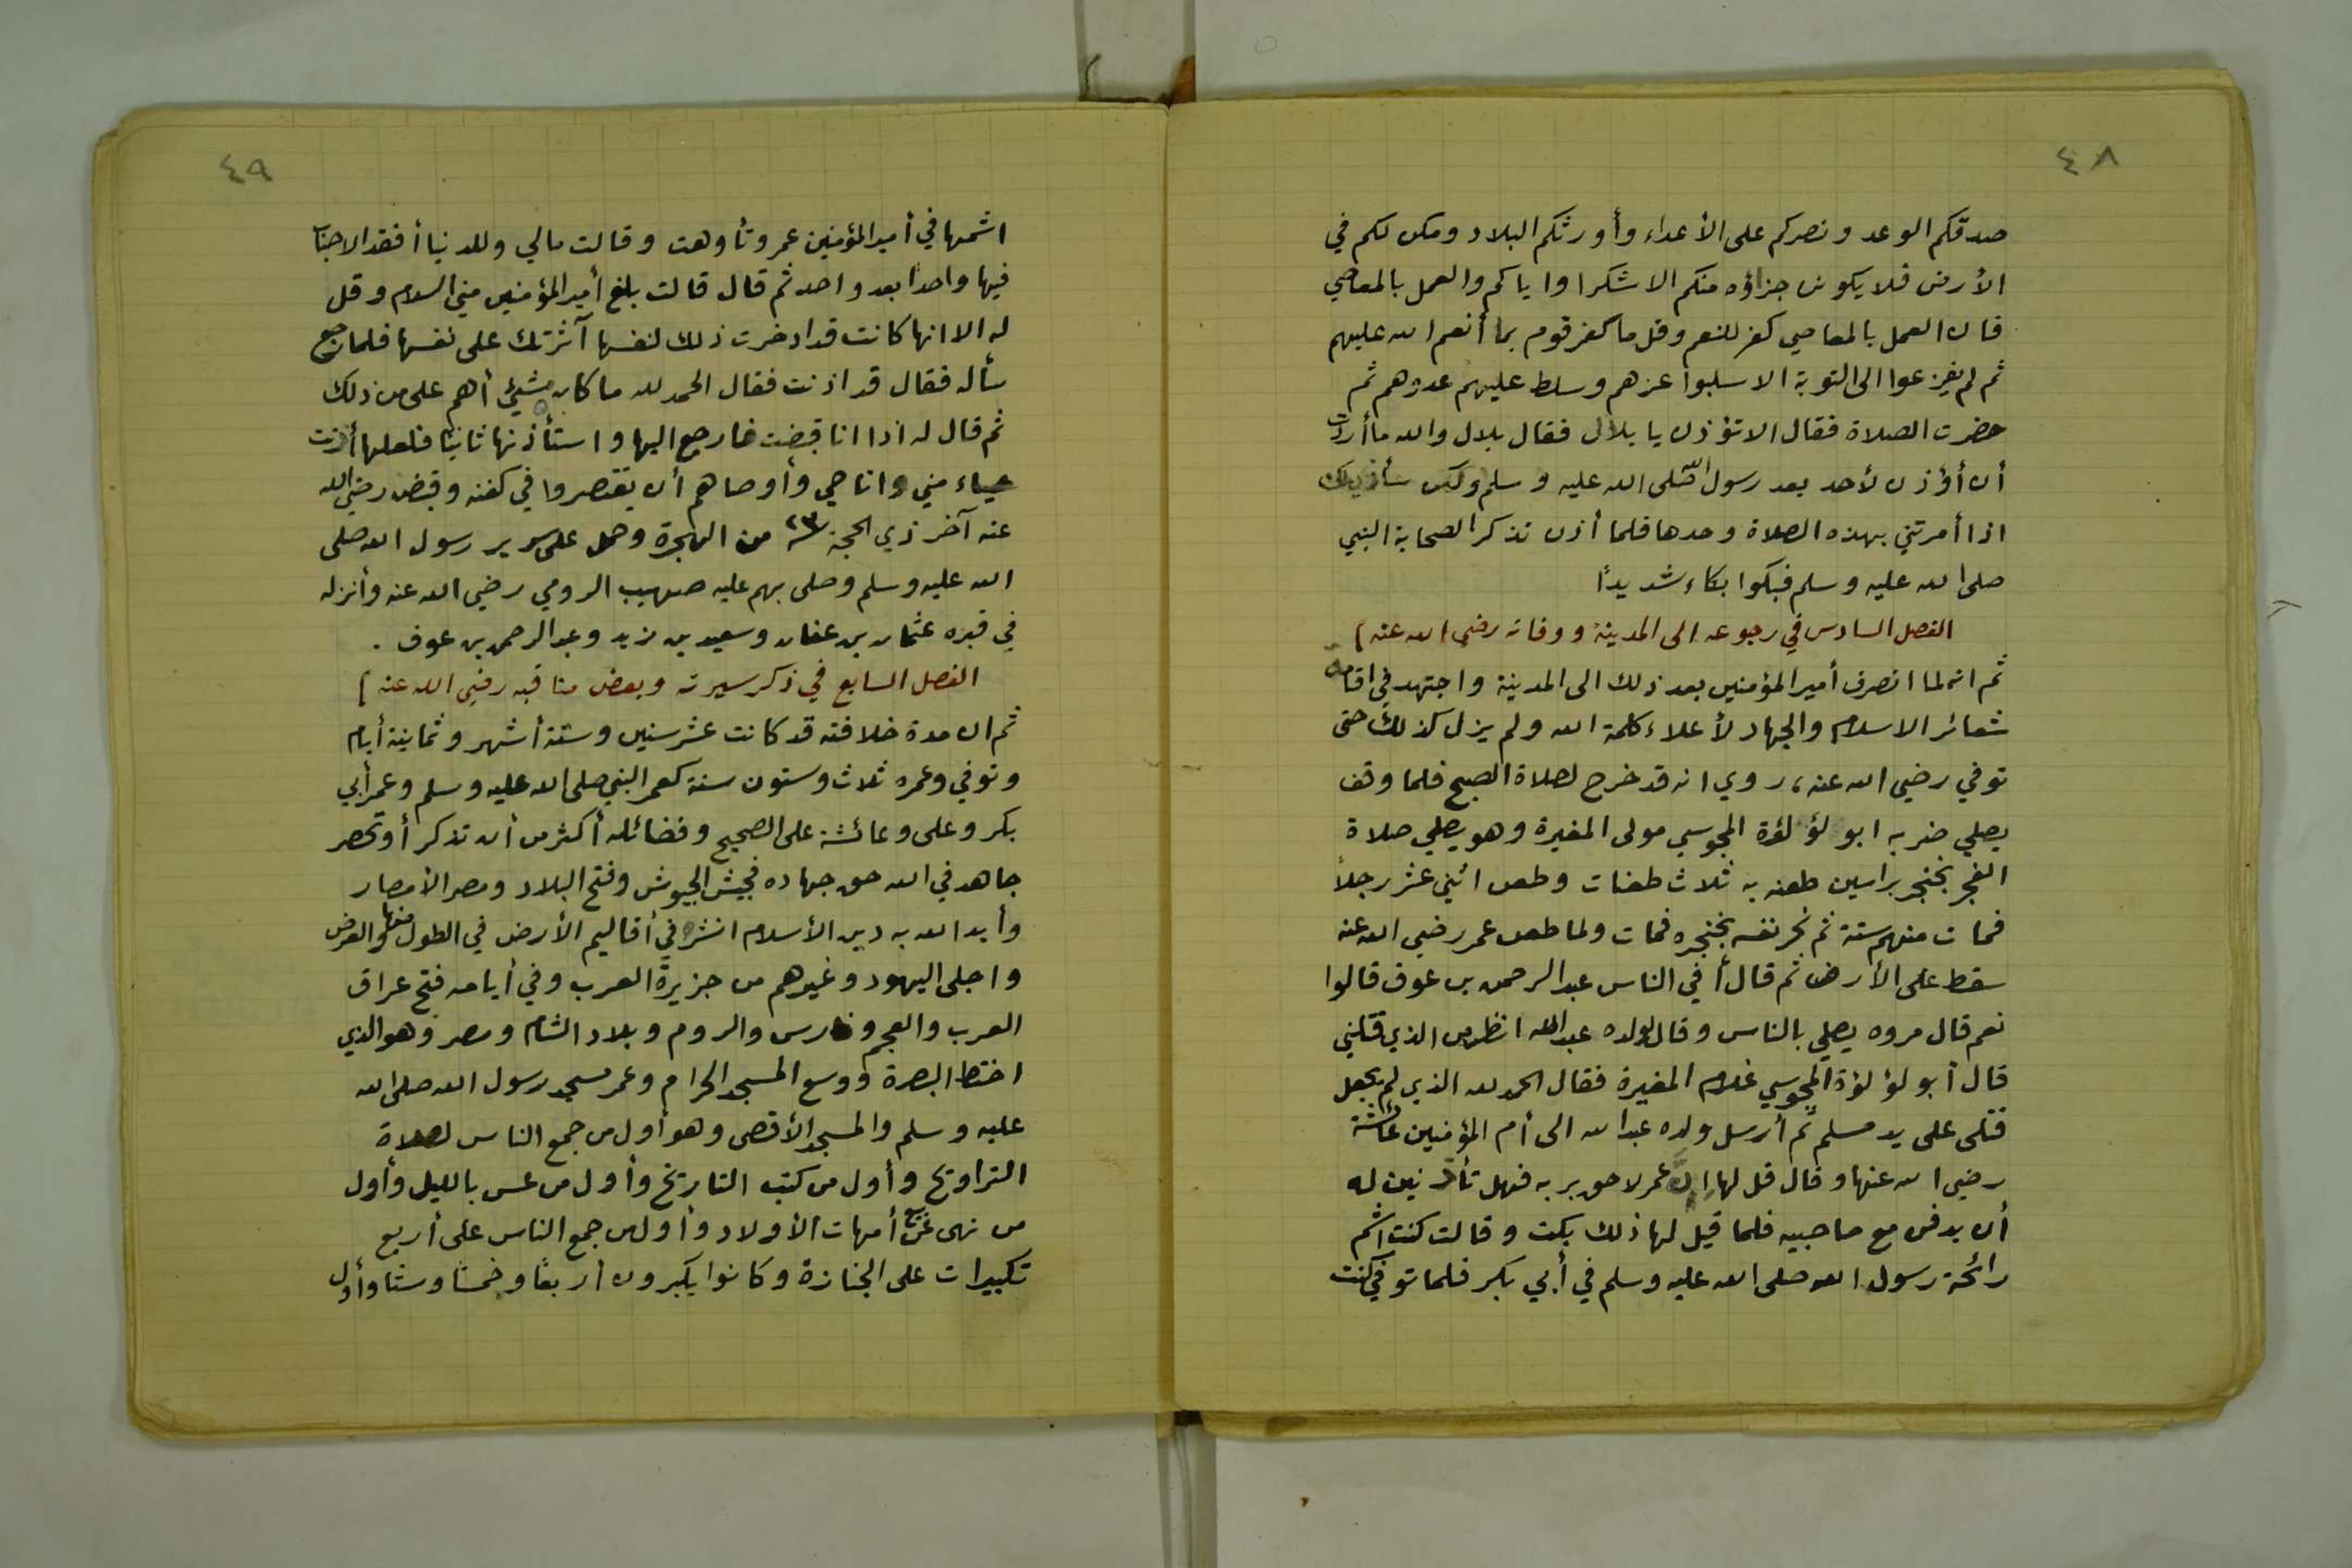 ٤٨
صدقكم الوعد ونصركم على الأعداء وأورثكم البلاد ومكن لكم في
الأرض فلا يكون جزاؤه منكم الا شكرا واياكم والعمل بالمعاصي
فان العمل بالمعاصي كفر للنعم وقل ما كفر قوم بما أنعم الله عليهم
ثم لم يفزعوا الى التوبة الا سلبوا عزهم وسلط عليهم عدوهم ثم
حضرت الصلاة فقال الا تؤذن يا بلال فقال بلال والله ما أردت
أن أؤذن لأحد بعد رسول الله صلى الله عليه وسلم ولكن
اذا أمرتني بهذه الصلاة وحدها فلما أذن تذكر الصحابة النبي
صلى الله عليه وسلم فبكوا بكاء شديدًا
الفصل السادس في رجوعه الى المدينة ووفاته رضي الله عنه ]
ثم انه لما انصرف أمير المؤمنين بعد ذلك الى المدينة واجتهد في اقامة
شعائر الاسلام والجهاد لأعلاء كلمة الله ولم يزل كذلك حتى
توفي رضي الله عنه، روي انه قد خرج لصلاة الصبح فلما وقف
يصلي ضربه ابو لؤلؤة المجوسي مولى المغيرة وهو يصلي صلاة
الفجر بخنجر براسين طعنه به ثلاث طعنات وطعن اثني عشر رجلاً
فمات منهم ستة ثم نحر نفسه بخنجره فمات ولما طعن عمر رضي الله عنه
سقط على الأرض ثم قال أفي الناس عبد الرحمن بن عوف قالوا
نعم قال مروه يصلي بالناس وقال لولده عبد الله انظر من الذي قتلني
قال أبو لؤلؤة المجوسي غلام المغيرة فقال الحمد لله الذي لم يجعل
قتلى على يد مسلم ثم أرسل ولده عبد الله الى أم المؤمنين عائشة
رضي الله عنها وقال قل لها إن عمر لاحق بربه فهل تأذنين له
أن يدفن مع صاحبيه فلما قيل لها ذلك بكت وقالت كنت اشم
رائحة رسول الله صلى الله عليه وسلم في أبي بكر فلما توفي كنت
٤٩
اشمها في أمير المؤمنين عمر وتأوهت وقالت مالي وللدنيا أفقد الاحباب
فيها واحدًا بعد واحد ثم قال قالت بلغ أمير المؤمنين مني السلام وقل
له الا انها كانت قد ادخرت ذلك لنفسها آثرتك على نفسها فلما رجع
سأله فقال قد اذنت فقال الحمد لله ما كان شيئ أهم علي من ذلك
ثم قال له اذا انا قبضت فارجع اليها واستأذنها ثانيًا فلعلها أذنت
حياء مني وانا حي وأوصاهم أن يقتصروا في كفنه وقبض رضي الله
عنه آخر ذي الحجة ٢٣ من الهجرة وحمل على سرير رسول الله صلى
الله عليه وسلم وصلى بهم عليه صهيب الرومي رضي الله عنه وأنزله
في قبره عثمان بن عفان وسعيد بن زيد وعبد الرحمن بن عوف .
الفصل السابع في ذكر سيرته وبعض مناقبه رضي الله عنه ]
ثم ان مدة خلافته قد كانت عشر سنين وستة أشهر وثمانية أيام
وتوفي وعمره ثلاث وستون سنة كعمر النبي صلى الله عليه وسلم وعمر أبي
بكر وعلى وعائشة على الصحيح وفضائله أكثر من أن تذكر أو تحصر
جاهد في الله حق جهاده فجيش الجيوش وفتح البلاد ومصر الأمصار
وأيد الله به دين الأسلام انشره في أقاليم الأرض في الطول منها والعرض
واجلى اليهود وغيرهم من جزيرة العرب وفي أيامه فتح عراق
العرب والعجم وفارس والروم وبلاد الشام ومصر وهو الذي
اختط البصرة ووسع المسجد الحرام وعمر مسجد رسول الله صلى الله
عليه وسلم والمسجد الأقصى وهو أول من جمع الناس لصلاة
التراويح وأول من كتب التاريخ وأول من عس بالليل وأول
من نهى عن بيع أمهات الأولاد وأول من جمع الناس على أربع
تكبيرات على الجنازة وكانوا يكبرون أربعًا وخمسًا وستًا وأول